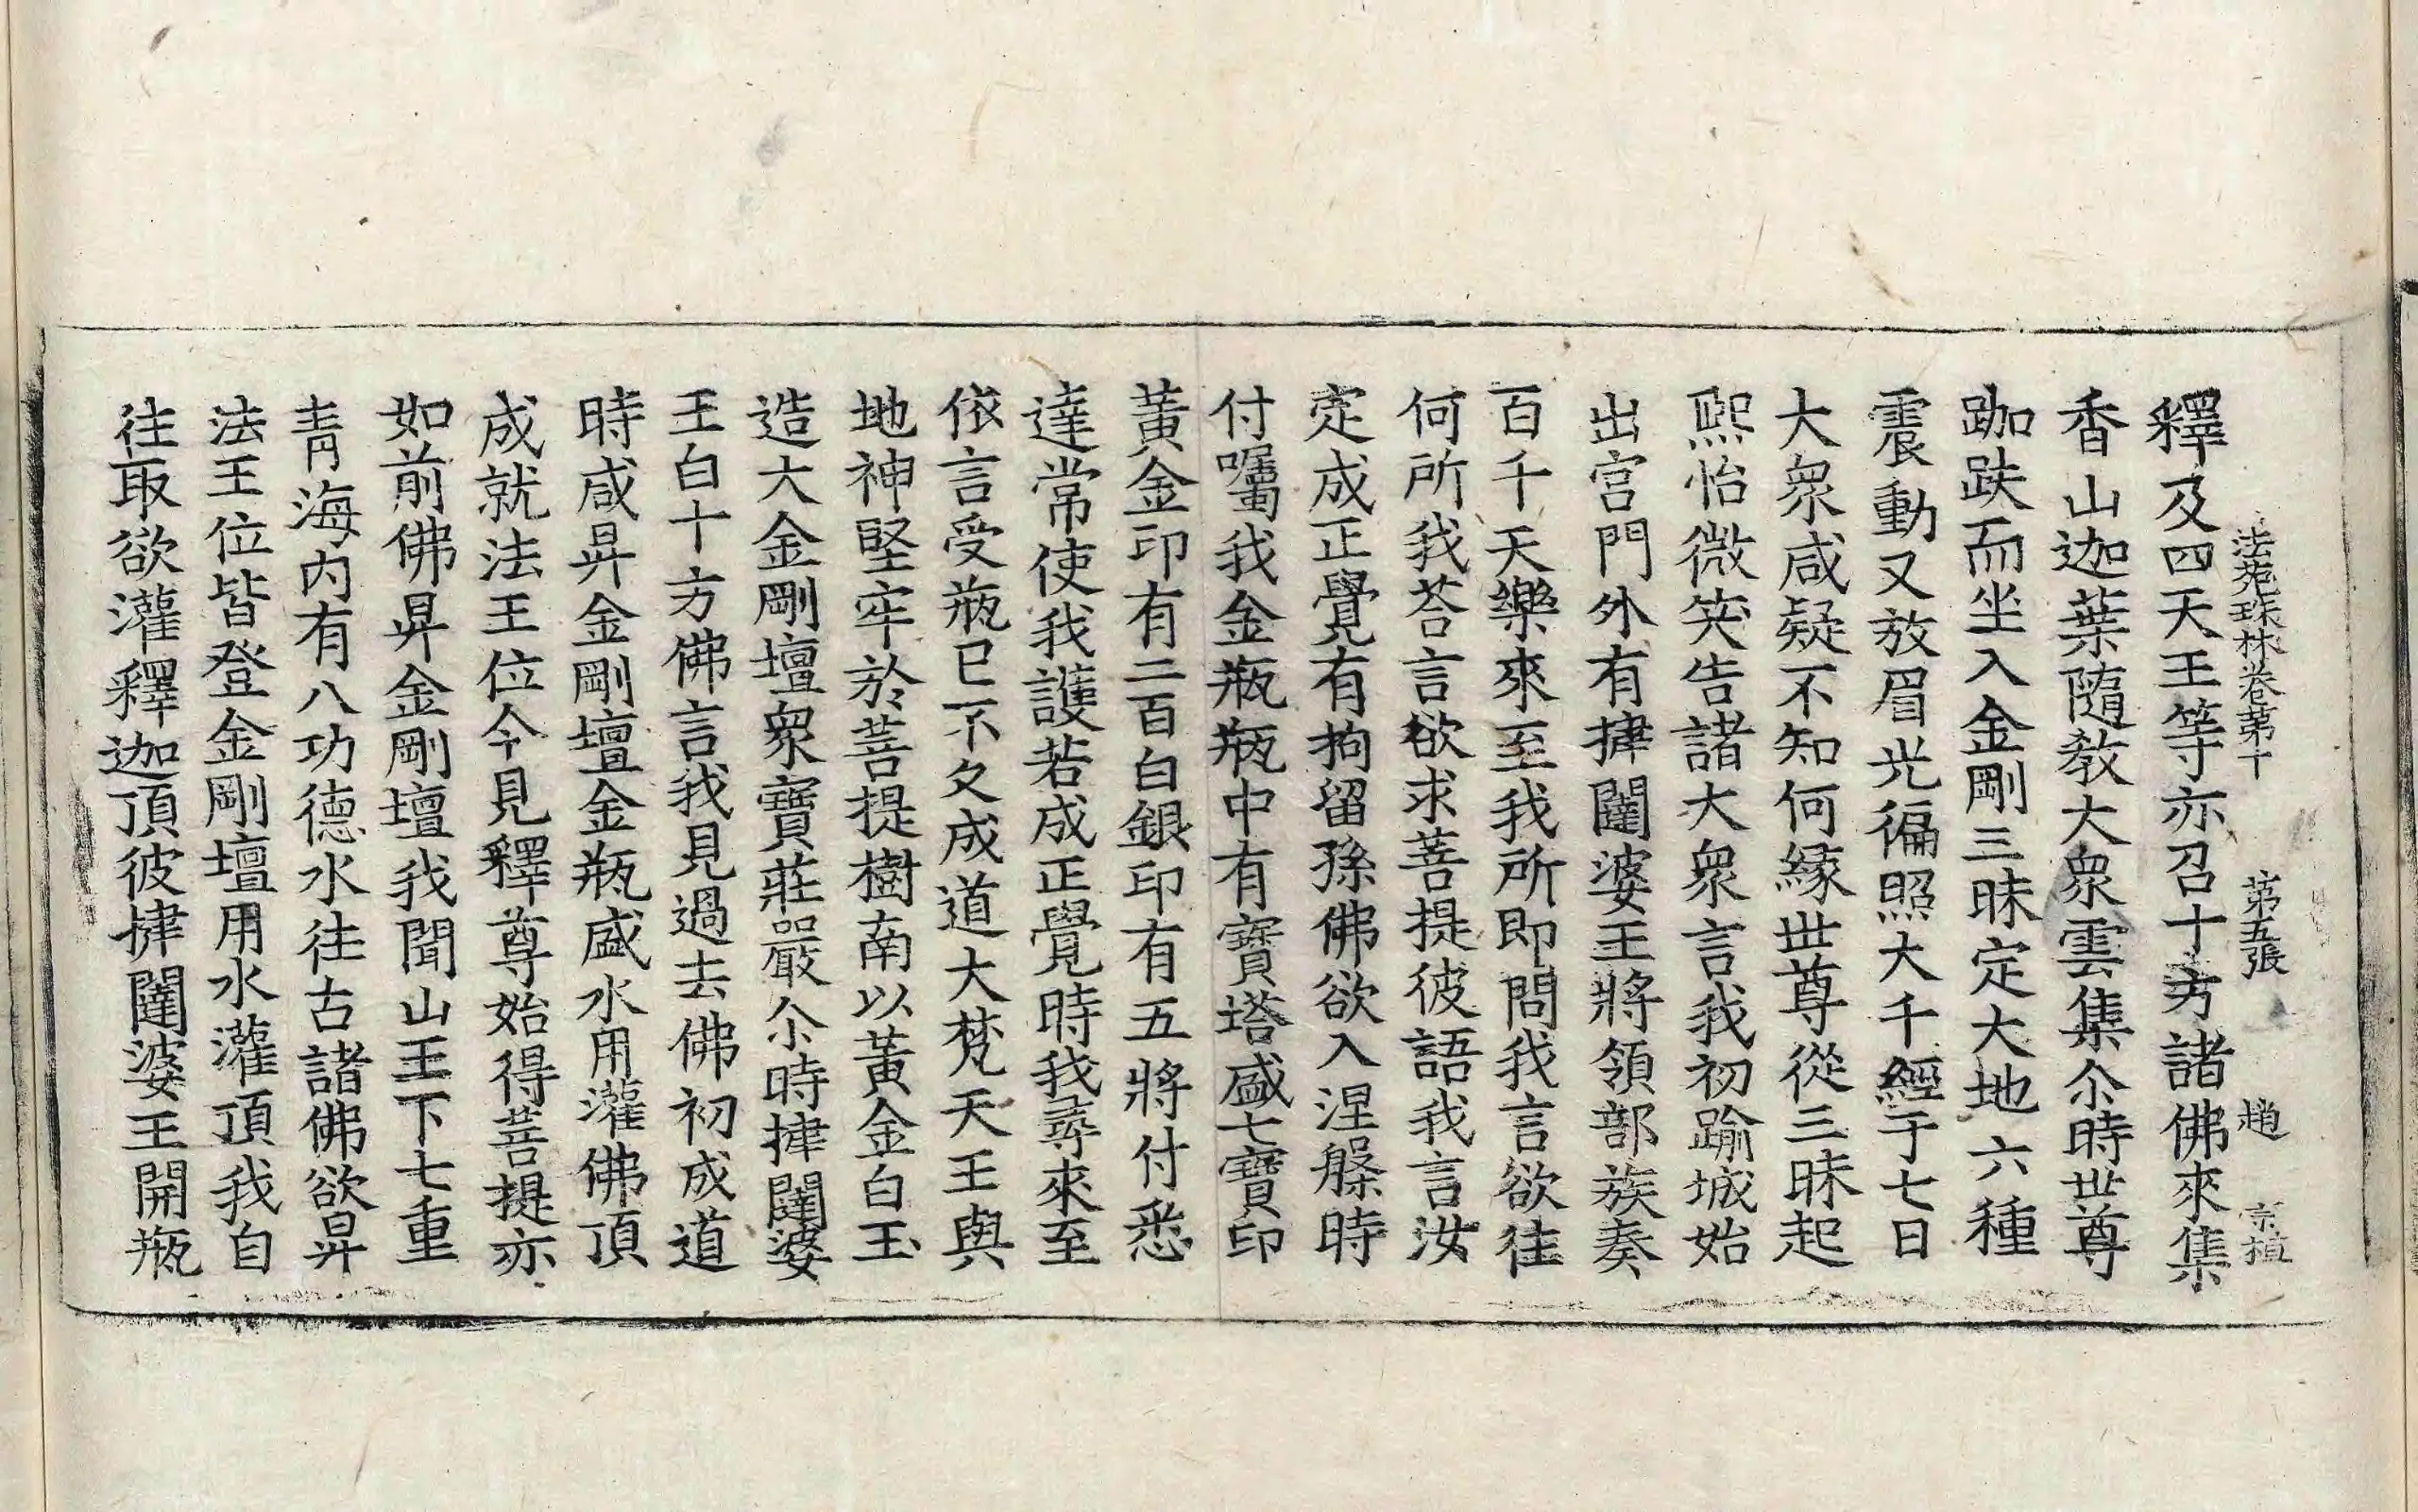 法苑珠林卷第十　第五張　趙　宗植
釋及四天王等亦召十方諸佛來集
香山迦葉隨教大衆雲集尒時世尊
跏趺而坐入金剛三昧定大地六種
震動又放眉光徧照大千經于七日
大衆咸疑不知何緣世尊從三昧起
熙怡微笑告諸大衆言我初踰城始
出宮門外有揵闥婆王將領部族奏
百千天樂來至我所即問我言欲往
何所我荅言欲求菩提彼語我言汝
定成正覺有拘留孫佛欲入涅槃時
付囑我金瓶瓶中有寶塔盛七寶印
黃金印有二百白銀印有五將付悉
達常使我護若成正覺時我尋來至
依言受瓶已不久成道大梵天王與
地神堅牢於菩提樹南以黃金白玉
造大金剛壇衆寶莊嚴尒時揵闥婆
王白十方佛言我見過去佛初成道
時咸昇金剛壇金瓶盛水用灌佛頂
成就法王位今見釋尊始得菩提亦
如前佛昇金剛壇我聞山王下七重
青海內有八功德水往古諸佛欲昇
法王位皆登金剛壇用水灌頂我自
往取欲灌釋迦頂彼揵闥婆王開瓶